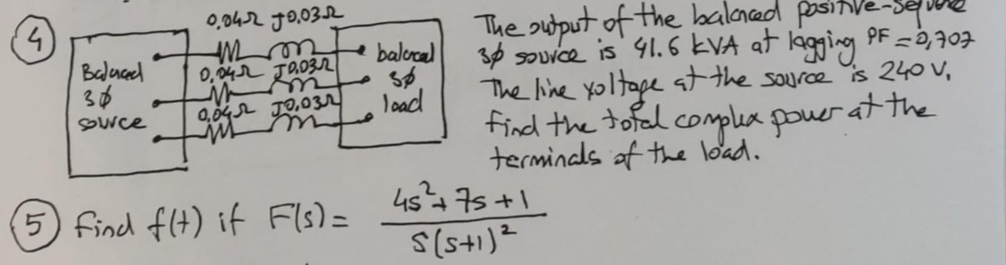 4
0.04Ω J0.03Ω
0.04Ω J0.03Ω
0.04Ω J0.03Ω
Balanced
3ϕ
source
balanced
3ϕ
load
The output of the balanced positive-sequence
3ϕ source is 41.6 kVA at lagging PF = 0,707
The line voltage at the source is 240 V.
find the total complex power at the
terminals of the load.
5 Find f(t) if F(s) = (4s² + 7s + 1) / (s(s+1)²)